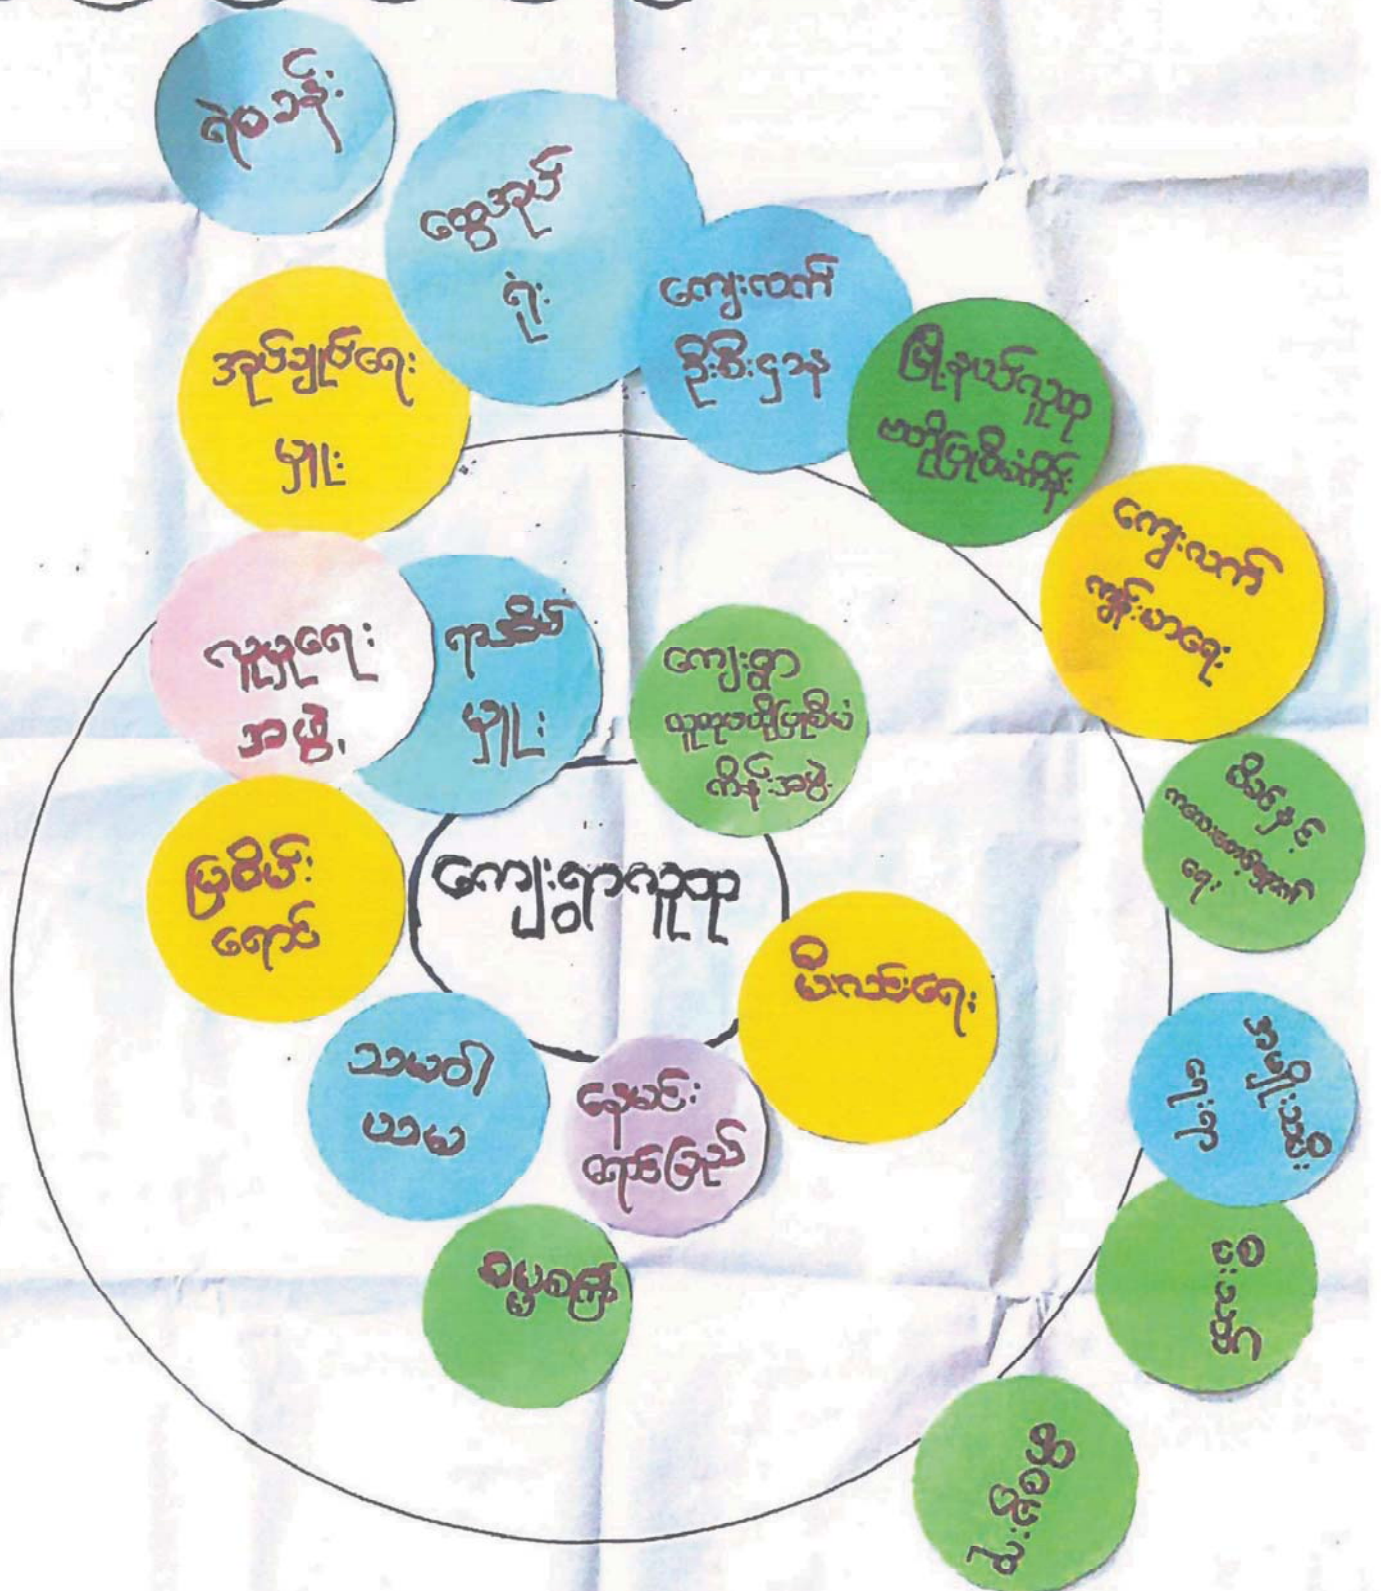 ရဲစခန်း
ထွေအုပ်
ရုံး
ကျေးလက်
ဦးစီးဌာန
မြို့နယ်လူထု
ဗဟိုပြုစီမံကိန်း
အုပ်ချုပ်ရေး
မှူး
ကျေးလက်
ကျန်းမာရေး
လူမှုရေး
အဖွဲ့
ရာအိမ်
မှူး
ကျေးရွာ
လူထုဗဟိုပြုစီမံ
ကိန်းအဖွဲ့
မိခင်နှင့်
ကလေးစောင့်ရှောက်
ရေး
မြစိမ်း
ရောင်
ကျေးရွာလူထု
မီးလင်းရေး
သမဝါ
ယမ
နေမင်း
ရောင်ခြည်
ဓမ္မစကြာ
အမျိုးသမီး
ရေးရာ